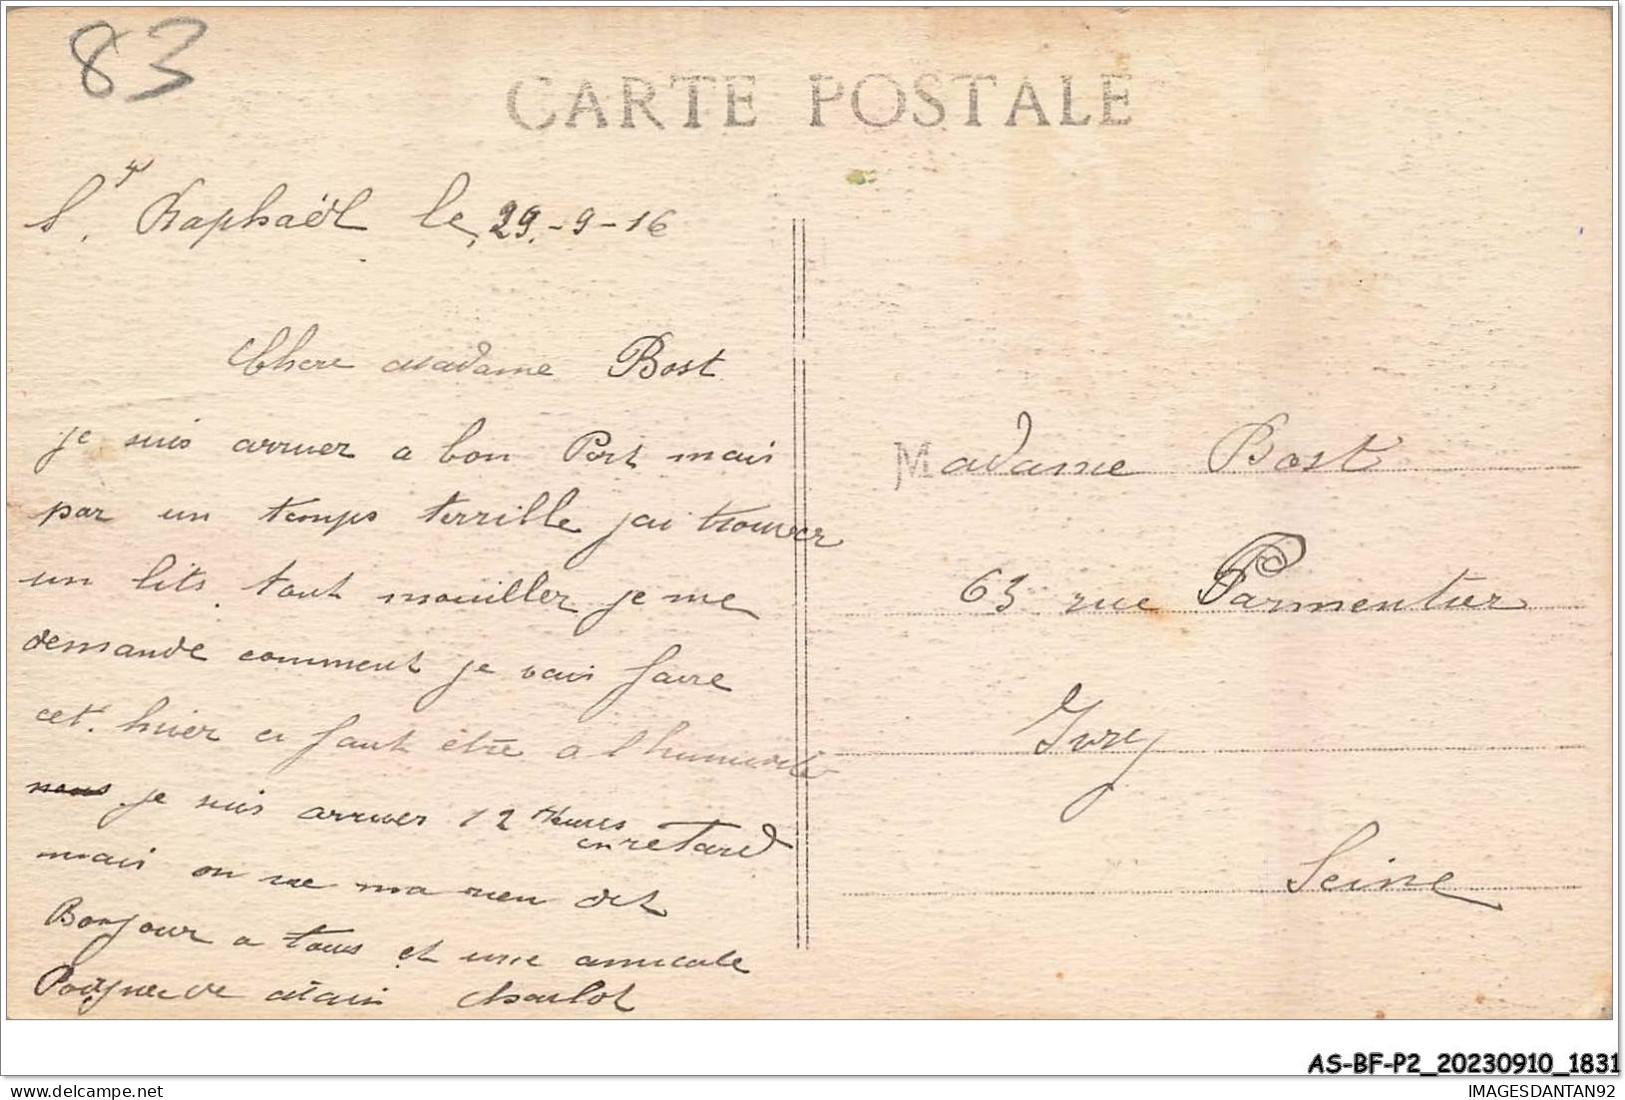 83
CARTE POSTALE
St Raphaël le, 29-9-16
Chere Madame Bost
je suis arriver a bon Port mais
par un temps terrille jai trouver
un lits tout mouiller je me
demande comment je vais faire
cet hiver ci faut être a l humidite
nous je suis arriver 12 Heures
en retard
mais on ne ma rien dit
Bonjour a tous et une amicale
Poignee de Main Charlot
Madame Bost
63 rue Parmentier
Ivry
Seine
AS-BF-P2_20230910_1831
https://www.delcampe.net
IMAGESDANTAN92